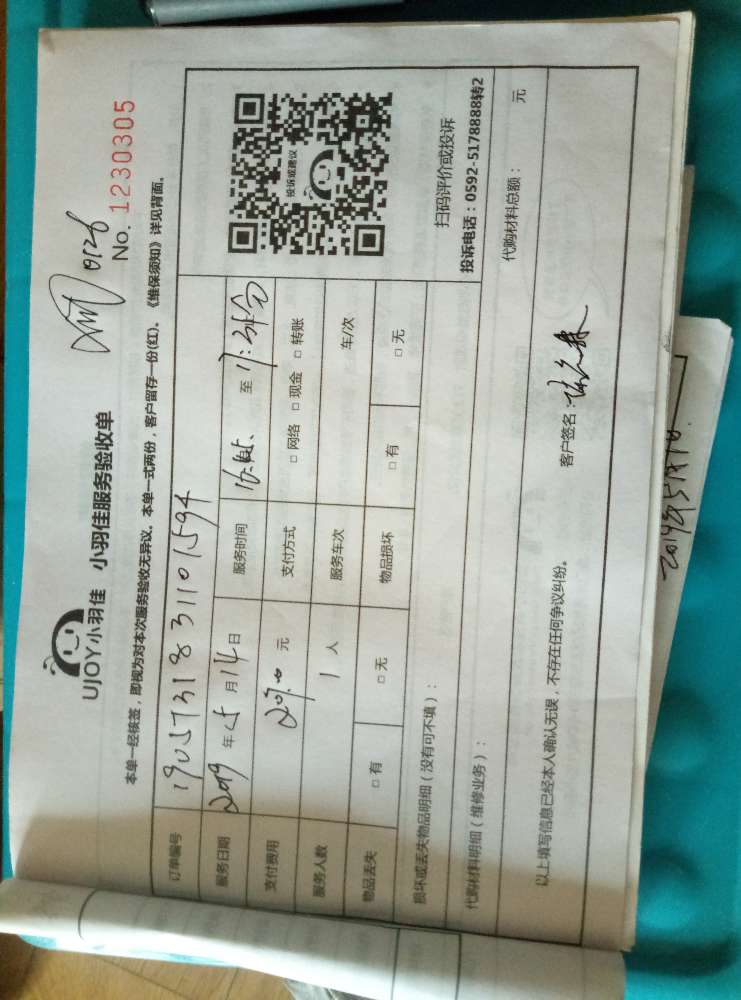 UJOY小羽佳 小羽佳服务验收单
0126
No. 1230305
本单一经核签，即视为对本次服务验收无异议。本单一式两份，客户留存一份(红)。《维保须知》详见背面。
订单编号
服务日期 2019 年 5 月 14 日 服务时间 至
支付费用 元 支付方式 □ 网络 □ 现金 □ 转账
服务人数 1 人 服务车次 车/次
物品丢失 □ 有 □ 无 物品损坏 □ 有 □ 无
投诉或建议
扫码评价或投诉
投诉电话：0592-5178888转2
损坏或丢失物品明细（没有可不填）：
代购材料明细（维修业务）： 代购材料总额： 元
以上填写信息已经本人确认无误，不存在任何争议纠纷。
客户签名：